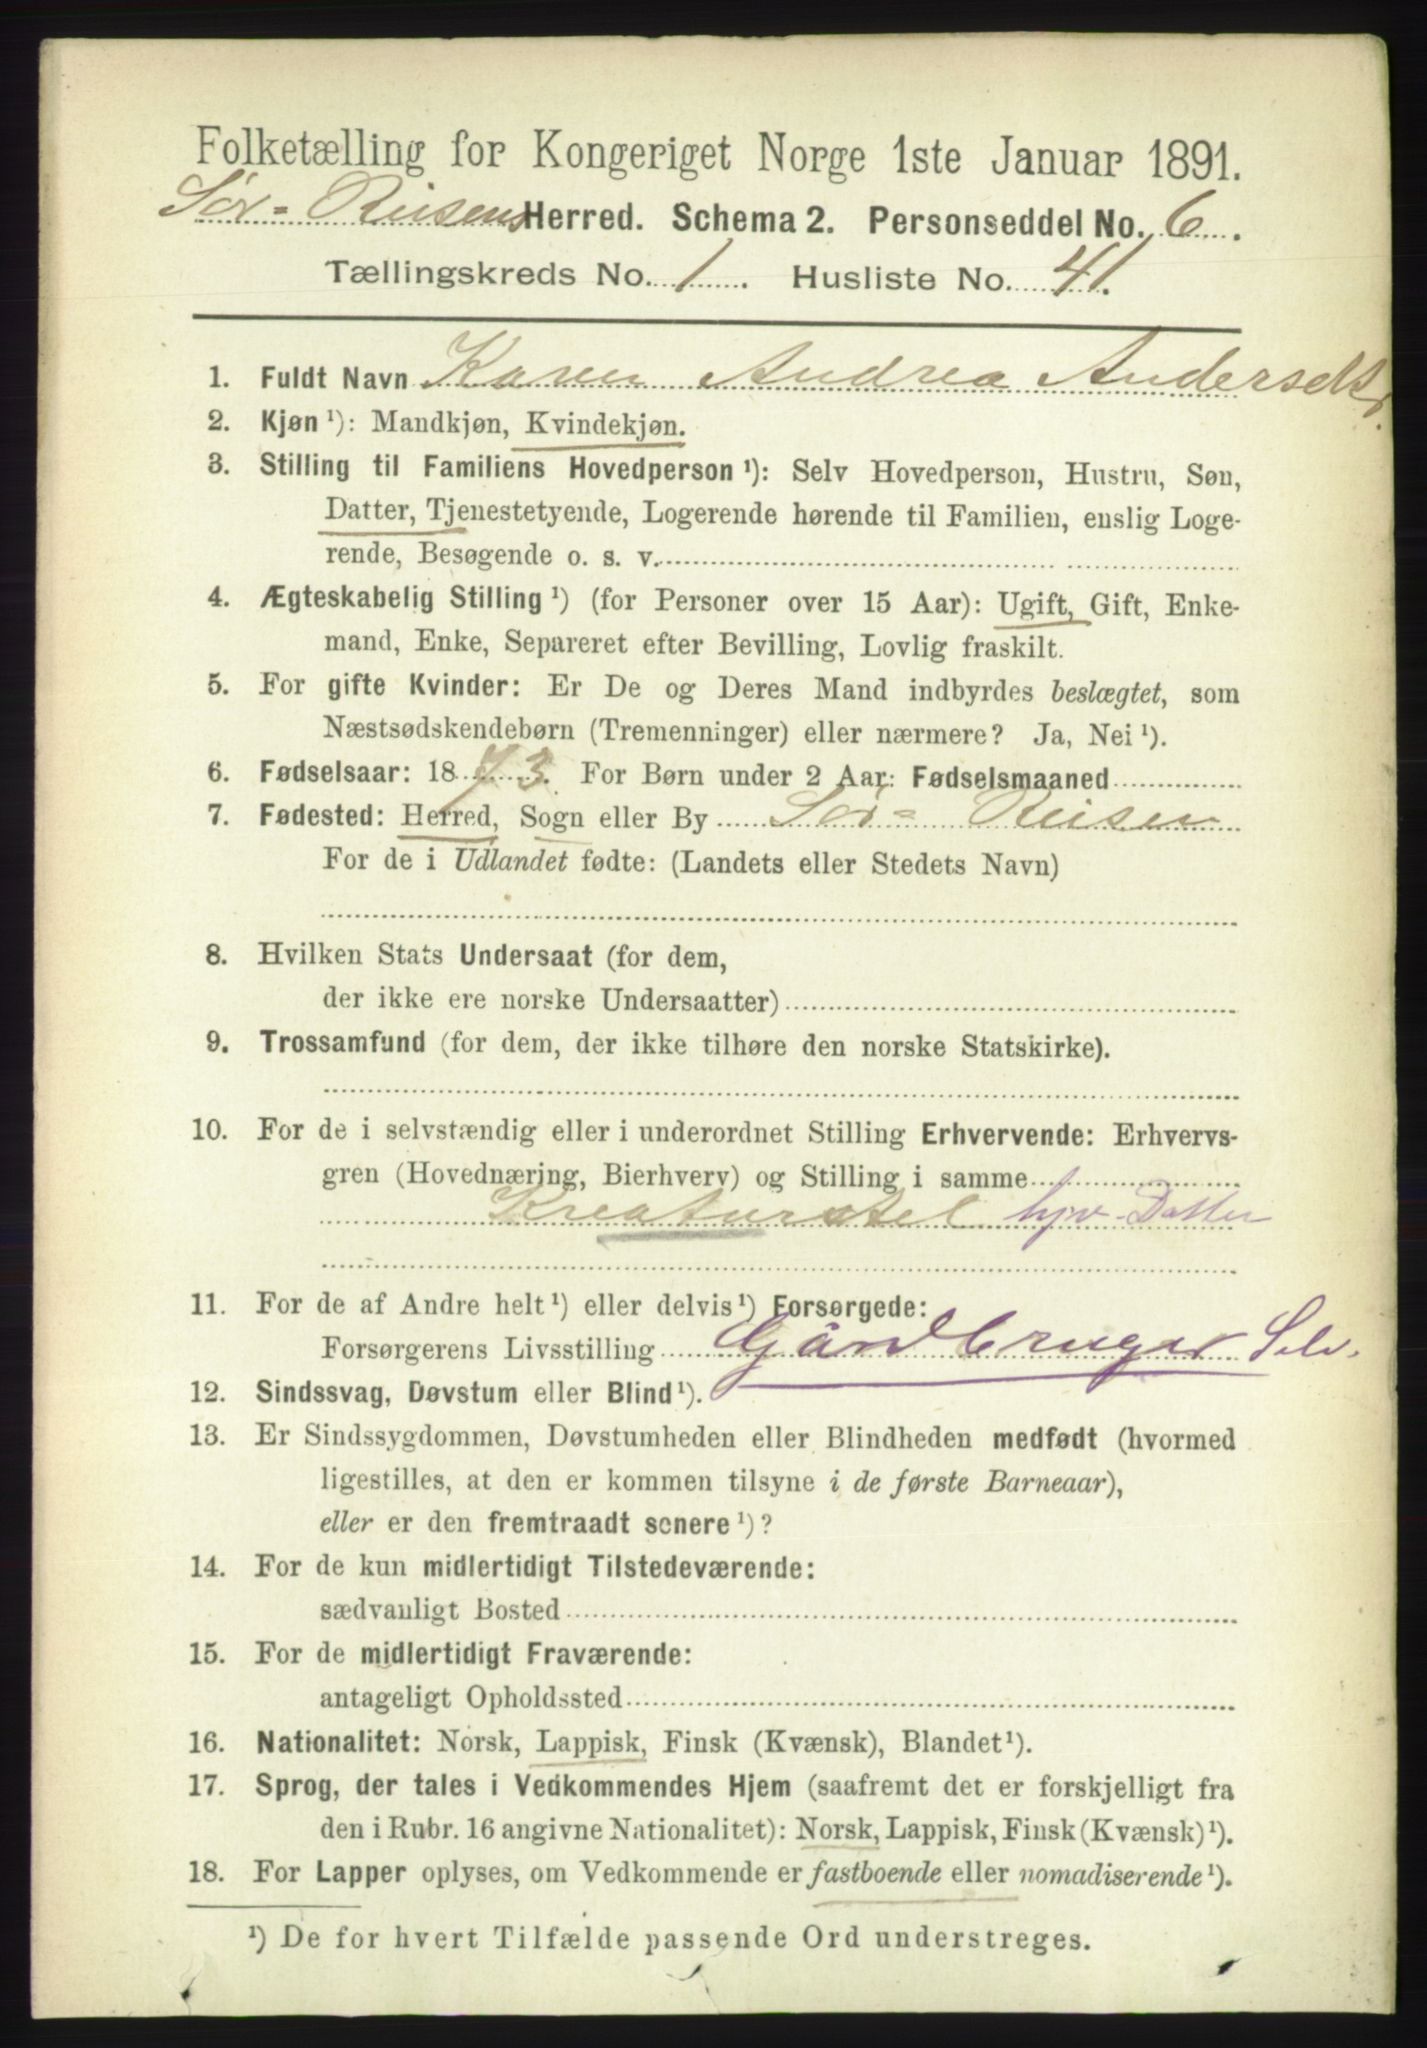 Folketælling for Kongeriget Norge 1ste Januar 1891.
Sør-Reisens Herred. Schema 2. Personseddel No. 6.
Tællingskreds No. 1. Husliste No. 41.
1. Fuldt Navn Karen Andrea Andersdtr.
2. Kjøn ¹): Mandkjøn, Kvindekjøn.
3. Stilling til Familiens Hovedperson ¹): Selv Hovedperson, Hustru, Søn,
Datter, Tjenestetyende, Logerende hørende til Familien, enslig Loge-
rende, Besøgende o. s. v.
4. Ægteskabelig Stilling ¹) (for Personer over 15 Aar): Ugift, Gift, Enke-
mand, Enke, Separeret efter Bevilling, Lovlig fraskilt.
5. For gifte Kvinder: Er De og Deres Mand indbyrdes beslægtet, som
Næstsødskendebørn (Tremenninger) eller nærmere? Ja, Nei ¹).
6. Fødselsaar: 1873. For Børn under 2 Aar: Fødselsmaaned
7. Fødested: Herred, Sogn eller By Sør-Reisen
For de i Udlandet fødte: (Landets eller Stedets Navn)
8. Hvilken Stats Undersaat (for dem,
der ikke ere norske Undersaatter)
9. Trossamfund (for dem, der ikke tilhøre den norske Statskirke).
10. For de i selvstændig eller i underordnet Stilling Erhvervende: Erhvervs-
gren (Hovednæring, Bierhverv) og Stilling i samme
Kreaturstel hjv. Datter
11. For de af Andre helt ¹) eller delvis ¹) Forsørgede:
Forsørgerens Livsstilling Gårdbruger Selv.
12. Sindssvag, Døvstum eller Blind ¹).
13. Er Sindssygdommen, Døvstumheden eller Blindheden medfødt (hvormed
ligestilles, at den er kommen tilsyne i de første Barneaar),
eller er den fremtraadt senere ¹)?
14. For de kun midlertidigt Tilstedeværende:
sædvanligt Bosted
15. For de midlertidigt Fraværende:
antageligt Opholdssted
16. Nationalitet: Norsk, Lappisk, Finsk (Kvænsk), Blandet ¹).
17. Sprog, der tales i Vedkommendes Hjem (saafremt det er forskjelligt fra
den i Rubr. 16 angivne Nationalitet): Norsk, Lappisk, Finsk (Kvænsk) ¹).
18. For Lapper oplyses, om Vedkommende er fastboende eller nomadiserende ¹).
¹) De for hvert Tilfælde passende Ord understreges.